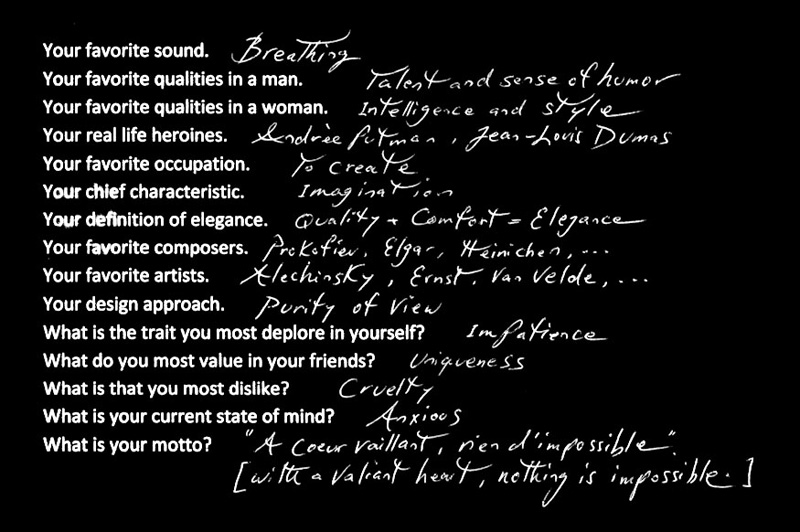 Your favorite sound. Breathing
Your favorite qualities in a man. Talent and sense of humor
Your favorite qualities in a woman. Intelligence and style
Your real life heroines. Andrèe Putman, Jean-Louis Dumas
Your favorite occupation. To create.
Your chief characteristic. Imagination
Your definition of elegance. Quality + Comfort = Elegance
Your favorite composers. Prokofiev, Elgar, Heinichen, ...
Your favorite artists. Alechinsky, Ernst, Van Velde, ...
Your design approach. Purity of View
What is the trait you most deplore in yourself? Impatience
What do you most value in your friends? Uniqueness
What is that you most dislike? Cruelty
What is your current state of mind? Anxious
What is your motto? "A Coeur vaillant, rien d'impossible".
[with a valiant heart, nothing is impossible.]